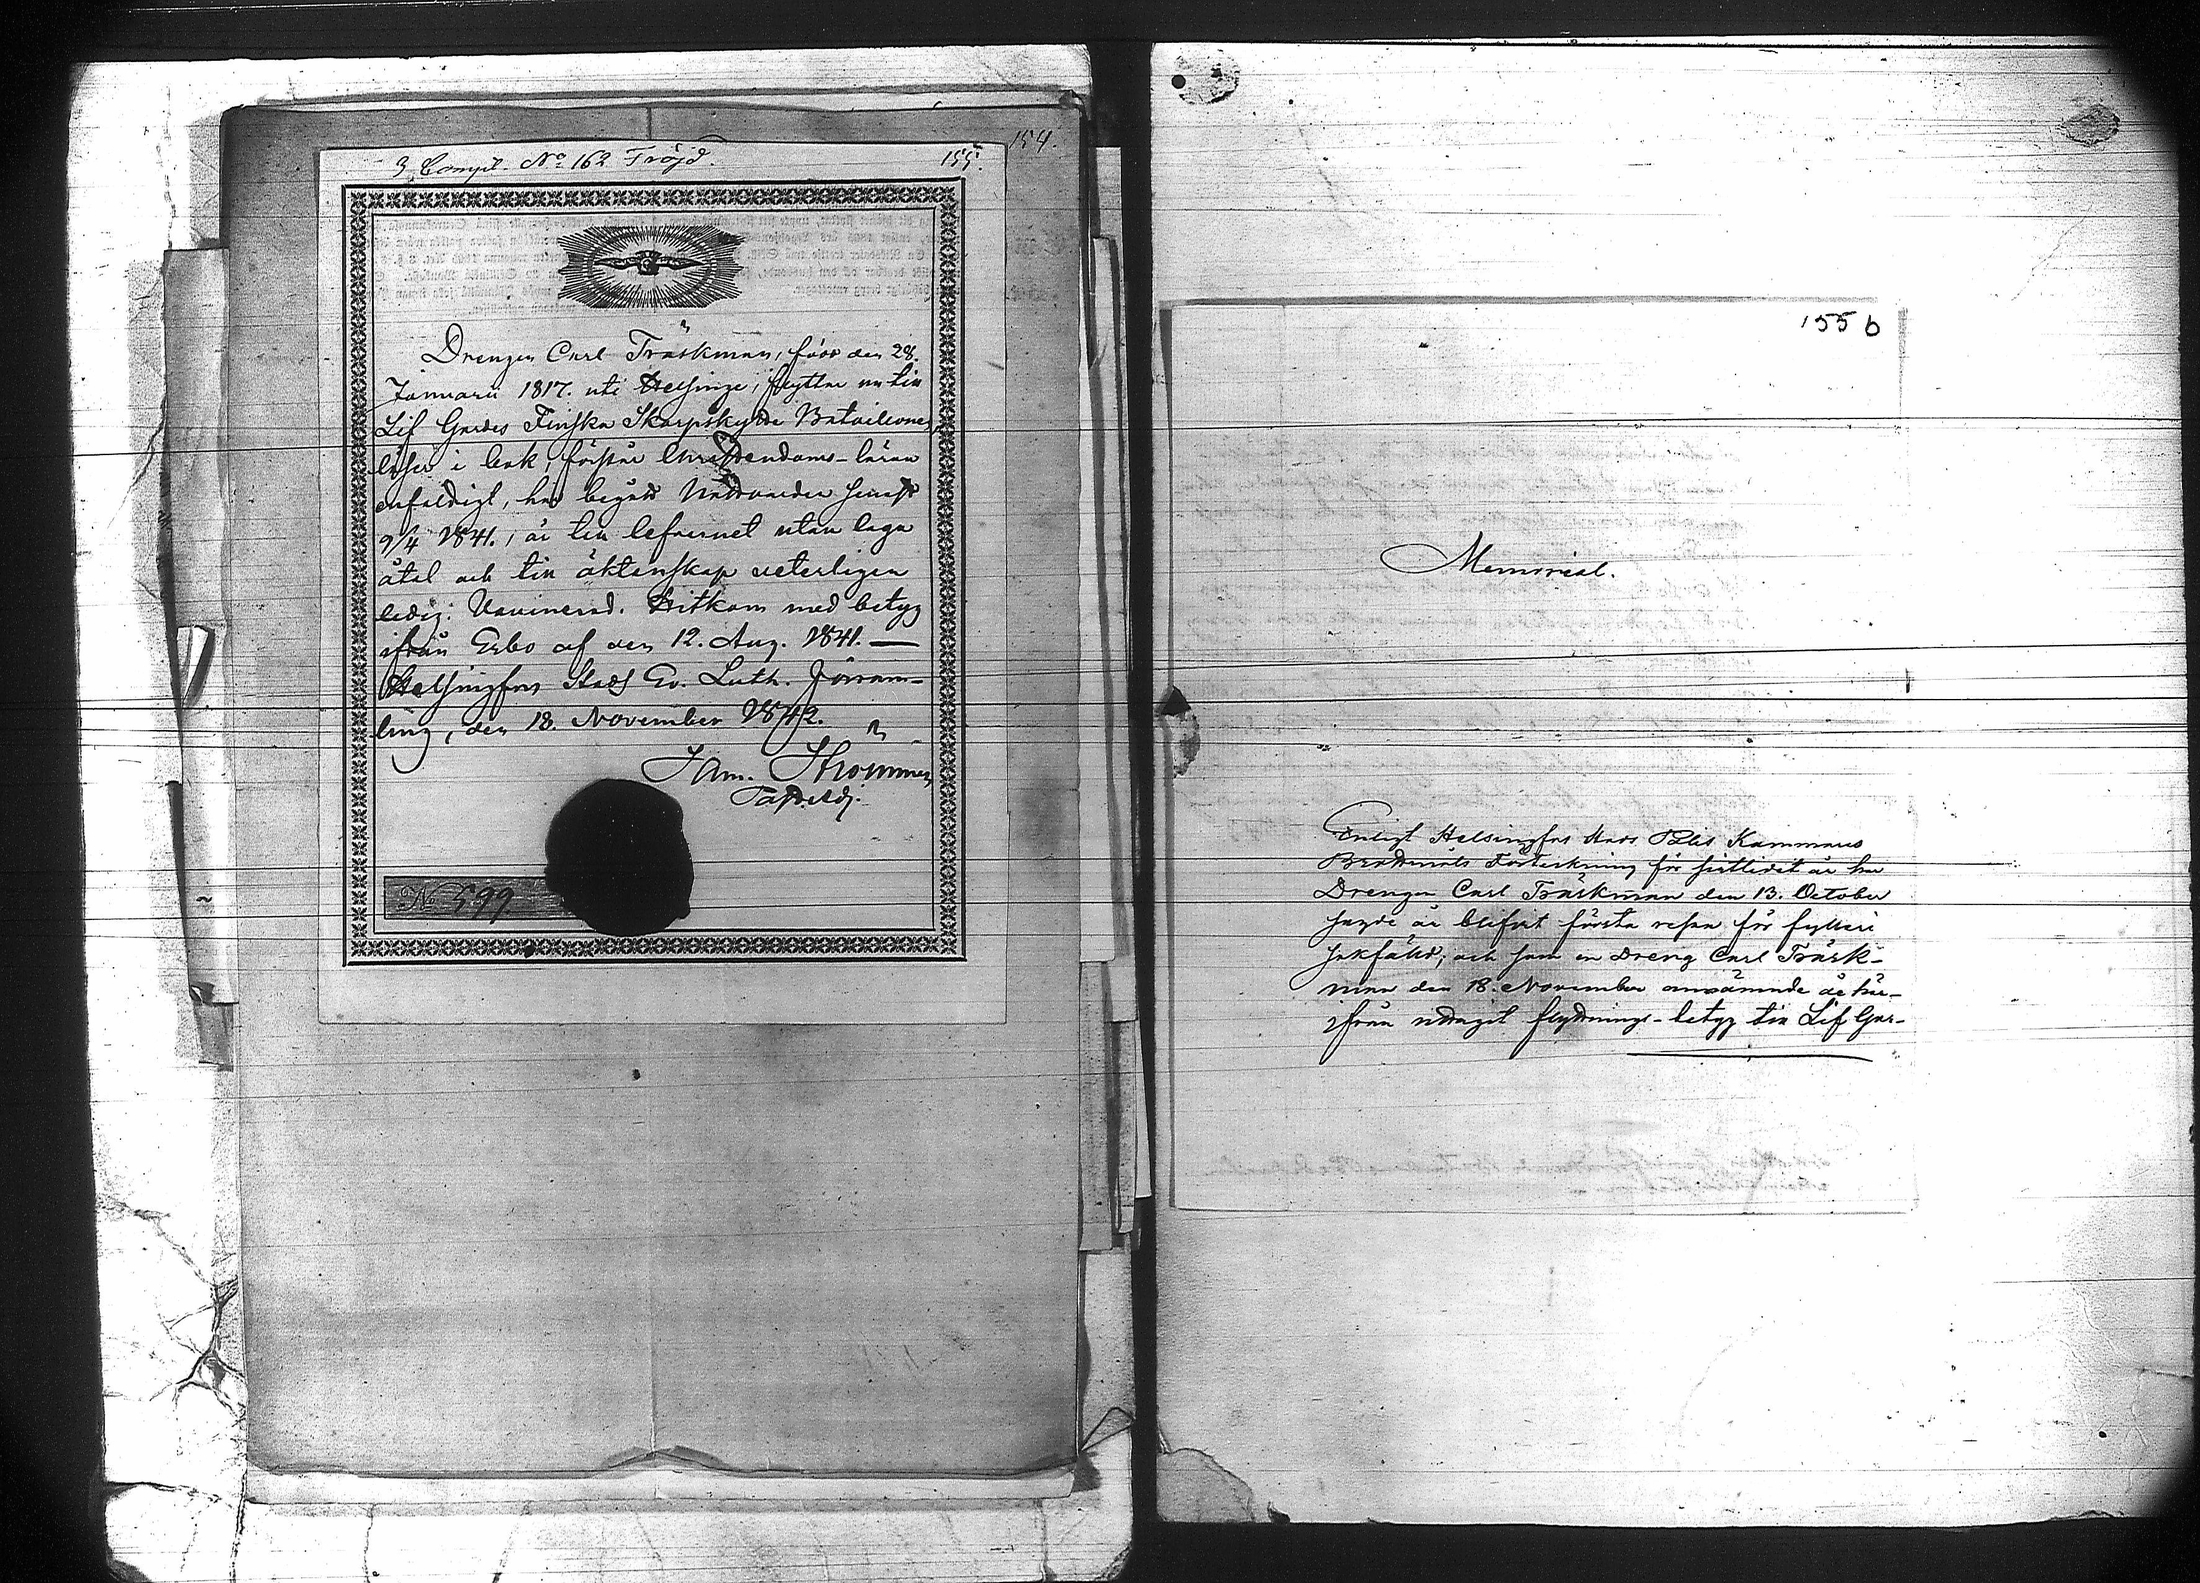 154.
3 Comp. No 162 Fröjd.
155.
Drengen Carl Träskman, född den 28.
Januarii 1817. uti Helsinge, flyttar nu till
Lif Gardes Finska Skarpskytte Bataillonen,
läser i bok, förstår Christendoms-läran
enfaldigt, har begått Nattvarden senast
9/4 1841., är till lefvernet utan laga
åtal och till äktenskap veterligen
ledig. Vaccinerad. Hitkom med betyg
ifrån Esbo af den 12. Aug. 1841. —
Helsingfors Stads Ev. Luth. Församling-
ling, den 18. November 1842.
Sam. Strömmer
No 599.
155 b
Memorial.
Enligt Helsingfors Stads Kammares
Brottmåls Förteckning för sistlidet år har
Drengen Carl Träskman den 13. October
sagde år blifvit första resan för fylleri
sakfälld; och som en Dreng Carl Träsk-
man den 18. November omnämnde år här-
ifrån uttagit flyttnings-betyg till Lif Gar-